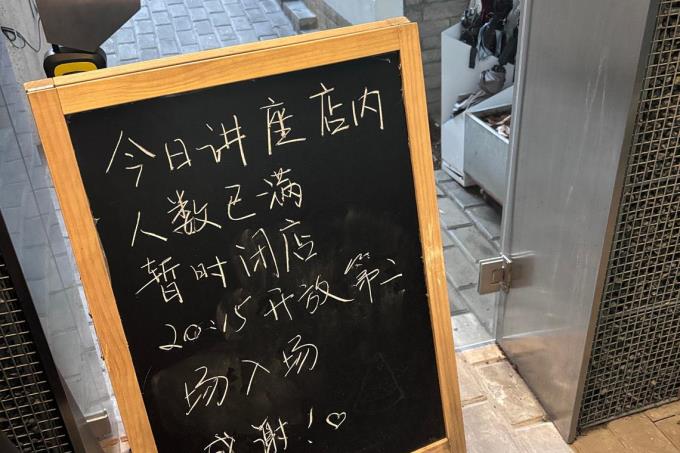 今日讲座店内
人数已满
暂时闭店
20:15开放第二
场入场
感谢！♡